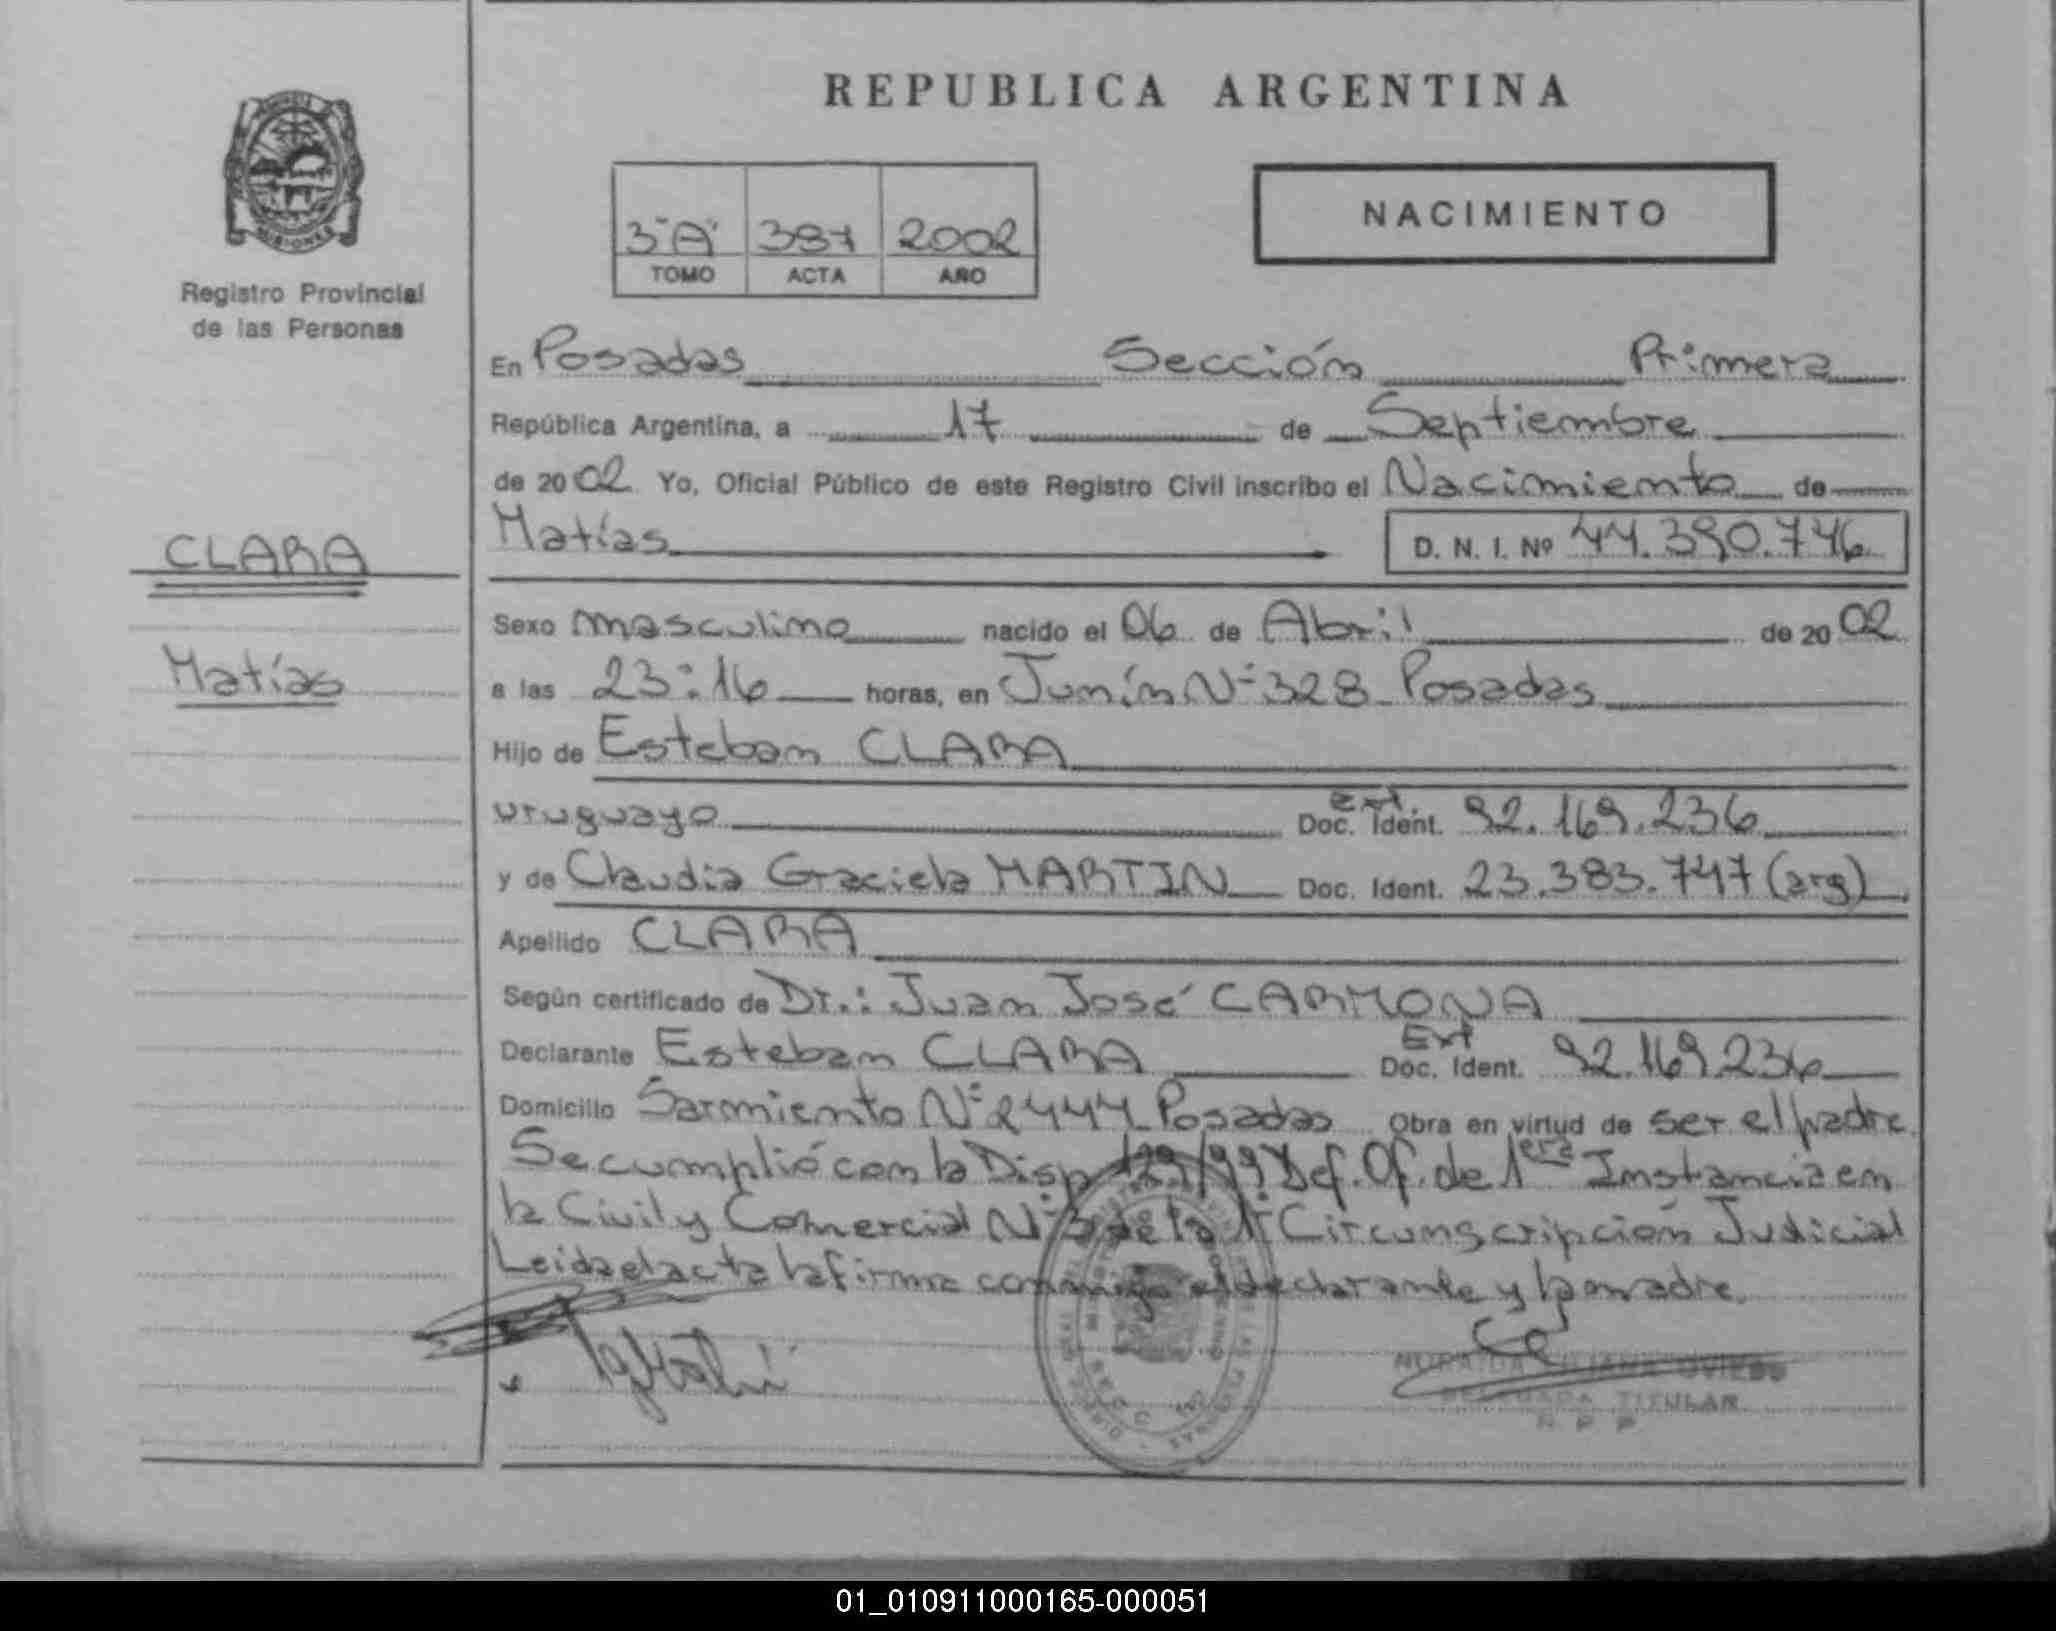 REPUBLICA ARGENTINA
MISIONES
Registro Provincial
de las Personas
3"A" 397 2002
TOMO ACTA AÑO
NACIMIENTO
En Posadas Sección Primera
República Argentina, a 17 de Septiembre
de 2002 Yo, Oficial Público de este Registro Civil inscribo el Nacimiento de
Matías D. N. I. Nº 44.390.746
CLARA
Matías
Sexo masculino nacido el 06 de Abril de 2002
a las 23:16 horas, en Junín Nº 328 Posadas
Hijo de Esteban CLARA
uruguayo Doc. Ident. ext. 92.169.236
y de Claudia Graciela MARTIN Doc. Ident. 23.383.747 (arg)
Apellido CLARA
Según certificado de Dr.: Juan José CARMONA
Declarante Esteban CLARA Doc. Ident. Ext 92.169.236
Domicilio Sarmiento Nº 2444 Posadas Obra en virtud de ser el padre
Se cumplió con la Disp. Def. Of. de 1era Instancia en
lo Civil y Comercial Nº 3 de la 1ª Circunscripción Judicial
Leida el acta la firma conmigo el declarante y la madre.
OVIEDO
DELEGADA TITULAR
R. P. P.
01_010911000165-000051